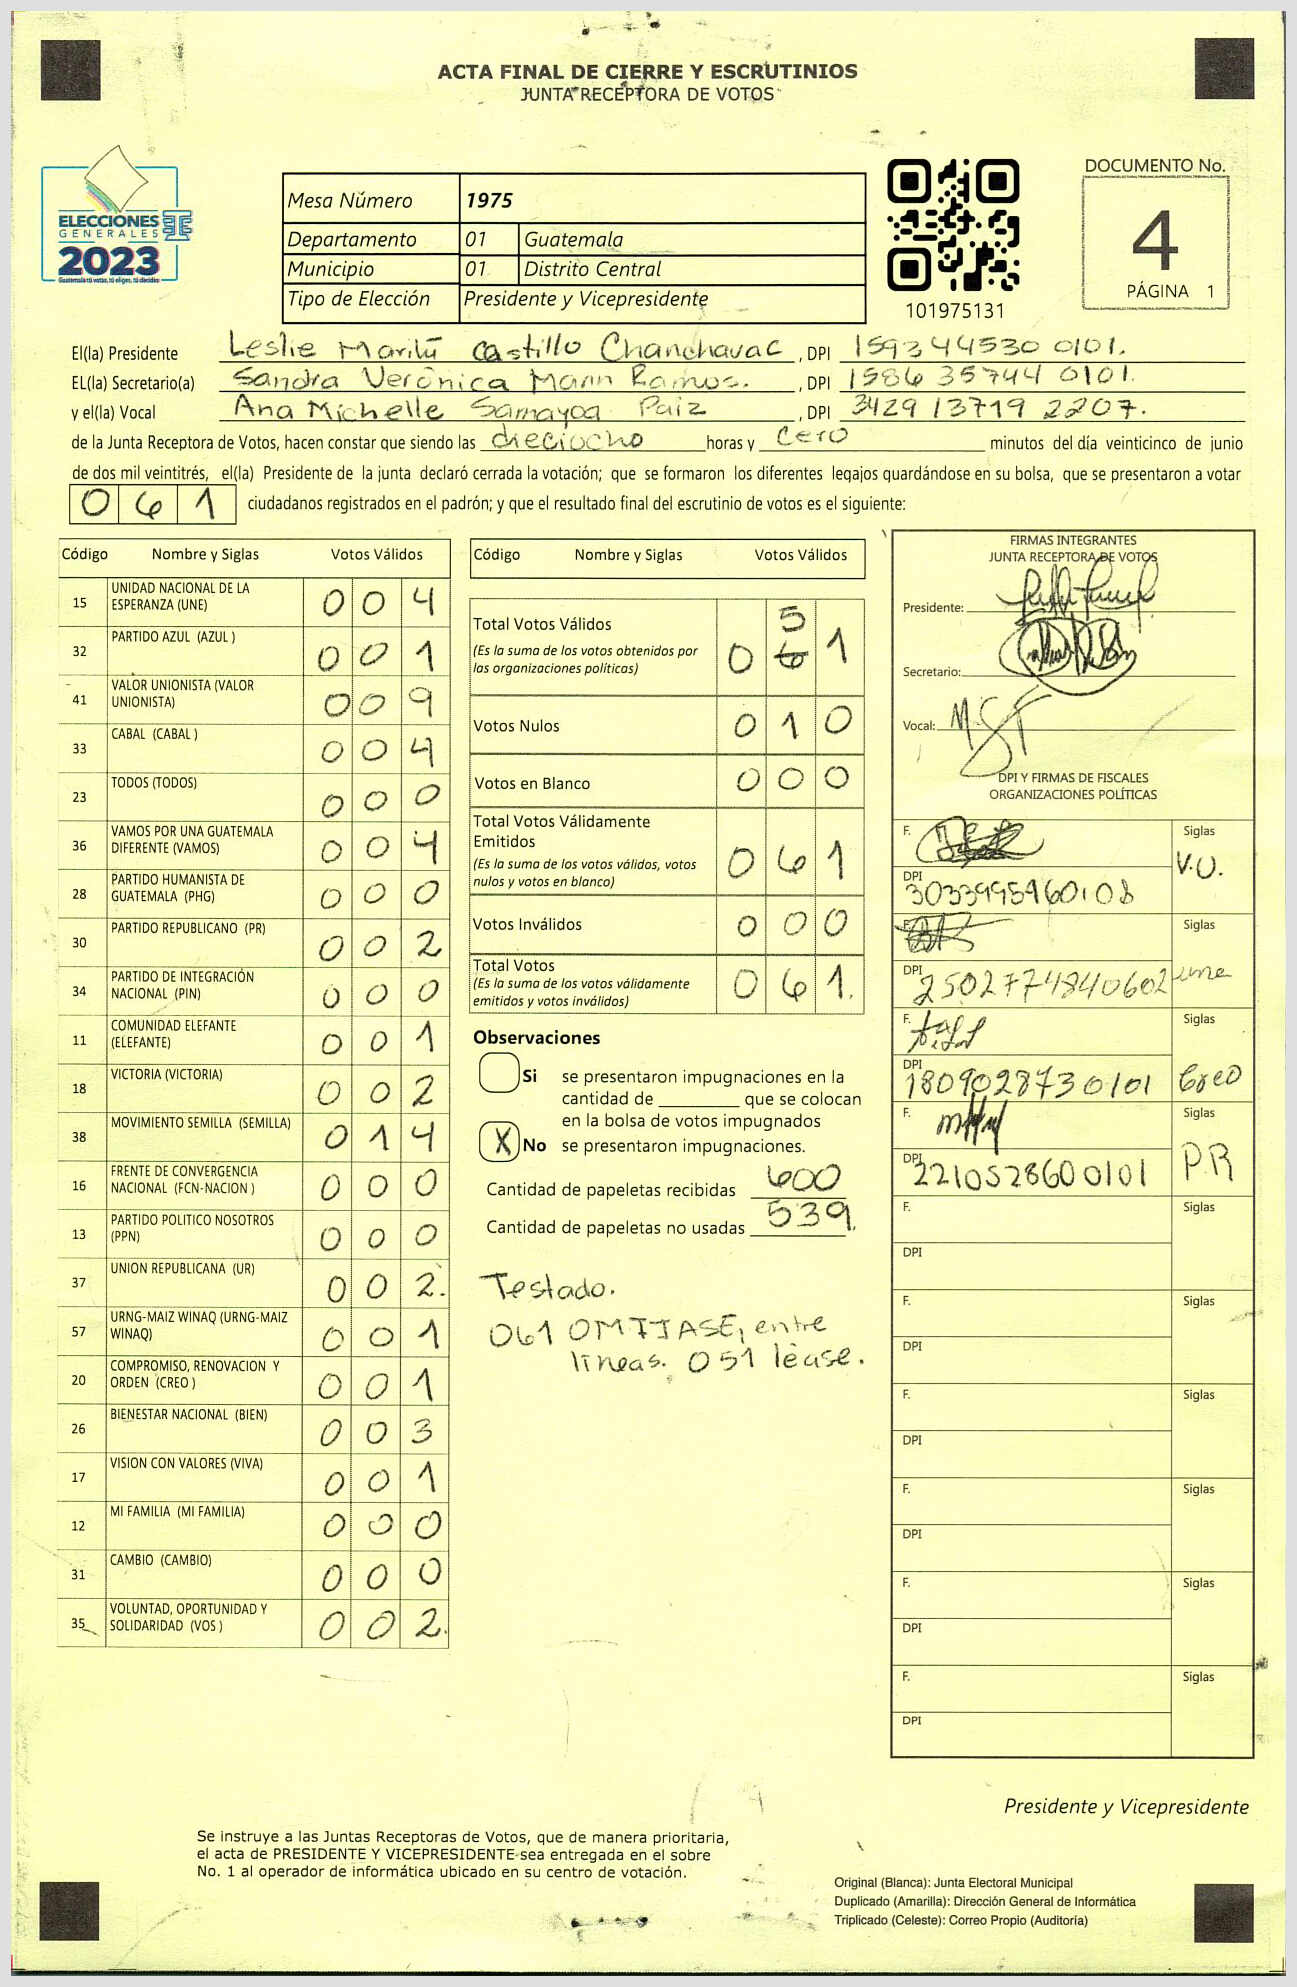 ACTA FINAL DE CIERRE Y ESCRUTINIOS
JUNTA RECEPTORA DE VOTOS
ELECCIONES
GENERALES
2023
Guatemala tú votas, tú eliges, tú decides
Mesa Número 1975
Departamento 01 Guatemala
Municipio 01 Distrito Central
Tipo de Elección Presidente y Vicepresidente
101975131
DOCUMENTO No.
4
PÁGINA 1
El(la) Presidente Leslie Marilú Castillo Chanchavac, DPI 159344530 0101.
EL(la) Secretario(a) Sandra Verónica Marin Ramos., DPI 1586 35744 0101.
y el(la) Vocal Ana Michelle Samayoa Paiz, DPI 3429 13719 2207.
de la Junta Receptora de Votos, hacen constar que siendo las dieciocho horas y cero minutos del día veinticinco de junio
de dos mil veintitrés, el(la) Presidente de la junta declaró cerrada la votación; que se formaron los diferentes legajos guardándose en su bolsa, que se presentaron a votar
061 ciudadanos registrados en el padrón; y que el resultado final del escrutinio de votos es el siguiente:
Código Nombre y Siglas Votos Válidos
15 UNIDAD NACIONAL DE LA ESPERANZA (UNE) 004
32 PARTIDO AZUL (AZUL ) 001
41 VALOR UNIONISTA (VALOR UNIONISTA) 009
33 CABAL (CABAL ) 004
23 TODOS (TODOS) 000
36 VAMOS POR UNA GUATEMALA DIFERENTE (VAMOS) 004
28 PARTIDO HUMANISTA DE GUATEMALA (PHG) 000
30 PARTIDO REPUBLICANO (PR) 002
34 PARTIDO DE INTEGRACIÓN NACIONAL (PIN) 000
11 COMUNIDAD ELEFANTE (ELEFANTE) 001
18 VICTORIA (VICTORIA) 002
38 MOVIMIENTO SEMILLA (SEMILLA) 014
16 FRENTE DE CONVERGENCIA NACIONAL (FCN-NACION ) 000
13 PARTIDO POLITICO NOSOTROS (PPN) 000
37 UNION REPUBLICANA (UR) 002.
57 URNG-MAIZ WINAQ (URNG-MAIZ WINAQ) 001
20 COMPROMISO, RENOVACION Y ORDEN (CREO ) 001
26 BIENESTAR NACIONAL (BIEN) 003
17 VISION CON VALORES (VIVA) 001
12 MI FAMILIA (MI FAMILIA) 000
31 CAMBIO (CAMBIO) 000
35 VOLUNTAD, OPORTUNIDAD Y SOLIDARIDAD (VOS ) 002.
Código Nombre y Siglas Votos Válidos
5
Total Votos Válidos 061
(Es la suma de los votos obtenidos por
las organizaciones políticas)
Votos Nulos 010
Votos en Blanco 000
Total Votos Válidamente
Emitidos 061
(Es la suma de los votos válidos, votos
nulos y votos en blanco)
Votos Inválidos 000
Total Votos 061.
(Es la suma de los votos válidamente
emitidos y votos inválidos)
Observaciones
Si se presentaron impugnaciones en la
cantidad de ________ que se colocan
en la bolsa de votos impugnados
X No se presentaron impugnaciones.
Cantidad de papeletas recibidas 600
Cantidad de papeletas no usadas 539.
Testado.
061 OMITASE, entre
lineas. 051 léase.
FIRMAS INTEGRANTES
JUNTA RECEPTORA DE VOTOS
Presidente:
Secretario:
Vocal:
DPI Y FIRMAS DE FISCALES
ORGANIZACIONES POLÍTICAS
F. Siglas
DPI 3033995960108 V.U.
F. Siglas
DPI 2502774840602 une
F. Siglas
DPI 1809028730101 Creo
F. Siglas
DPI 2210528600101 P.R
F. Siglas
DPI
F. Siglas
DPI
F. Siglas
DPI
F. Siglas
DPI
F. Siglas
DPI
F. Siglas
DPI
Presidente y Vicepresidente
Se instruye a las Juntas Receptoras de Votos, que de manera prioritaria,
el acta de PRESIDENTE Y VICEPRESIDENTE sea entregada en el sobre
No. 1 al operador de informática ubicado en su centro de votación.
Original (Blanca): Junta Electoral Municipal
Duplicado (Amarilla): Dirección General de Informática
Triplicado (Celeste): Correo Propio (Auditoría)